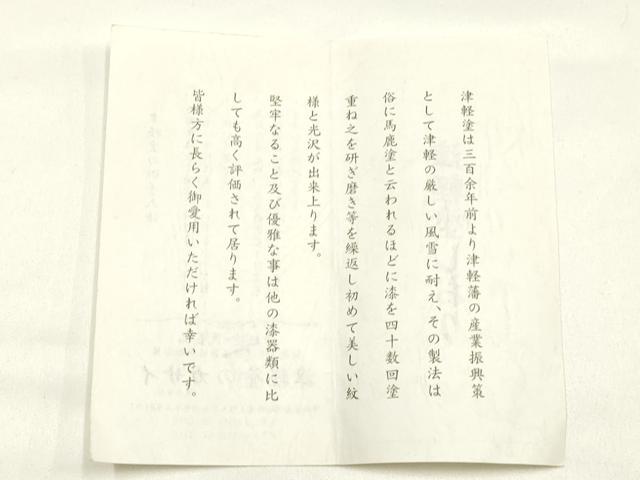 津軽塗は三百余年前より津軽藩の産業振興策
として津軽の厳しい風雪に耐え、その製法は
俗に馬鹿塗と云われるほどに漆を四十数回塗
重ね之を研ぎ磨き等を繰返し初めて美しい紋
様と光沢が出来上ります。
堅牢なること及び優雅な事は他の漆器類に比
しても高く評価されて居ります。
皆様方に長らく御愛用いただければ幸いです。